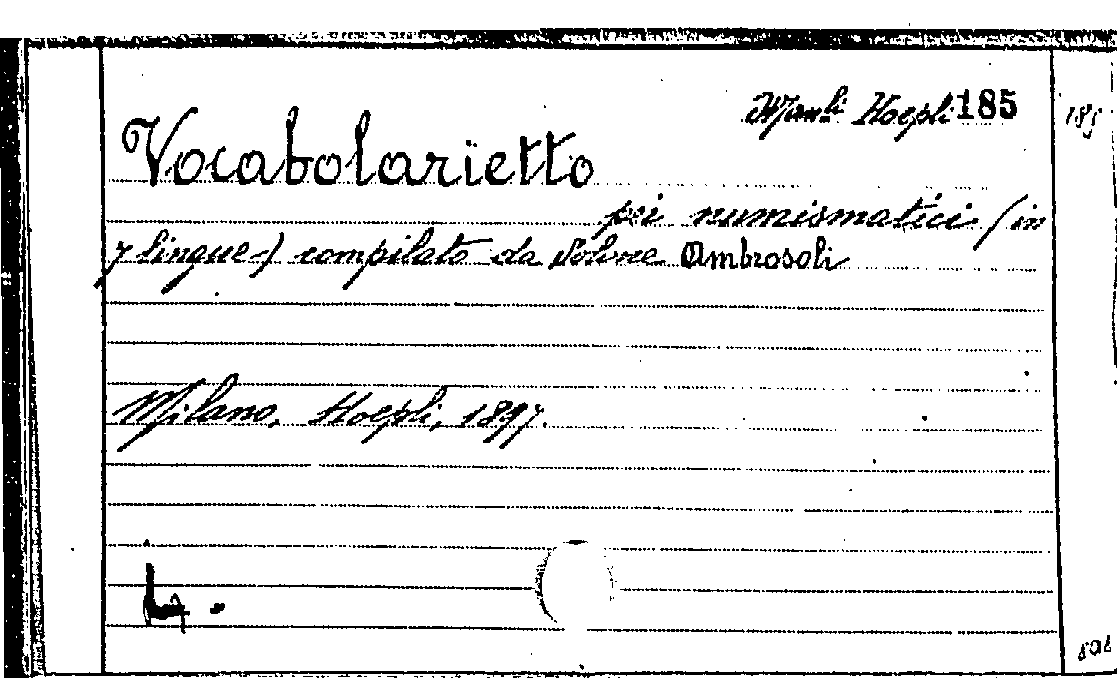 Manli Hoepli 185
185
Vocabolarietto
pei numismatici (in
7 lingue) compilato da Solone Ambrosoli
Milano, Hoepli, 1897.